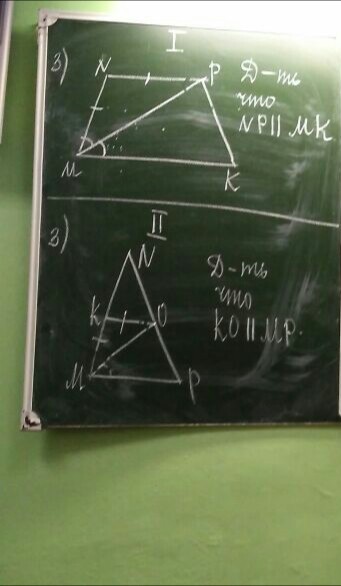 I
3) N P Д-ть
что
NP || MK
M K
II
3) N Д-ть
что
K O KO || MP.
M P